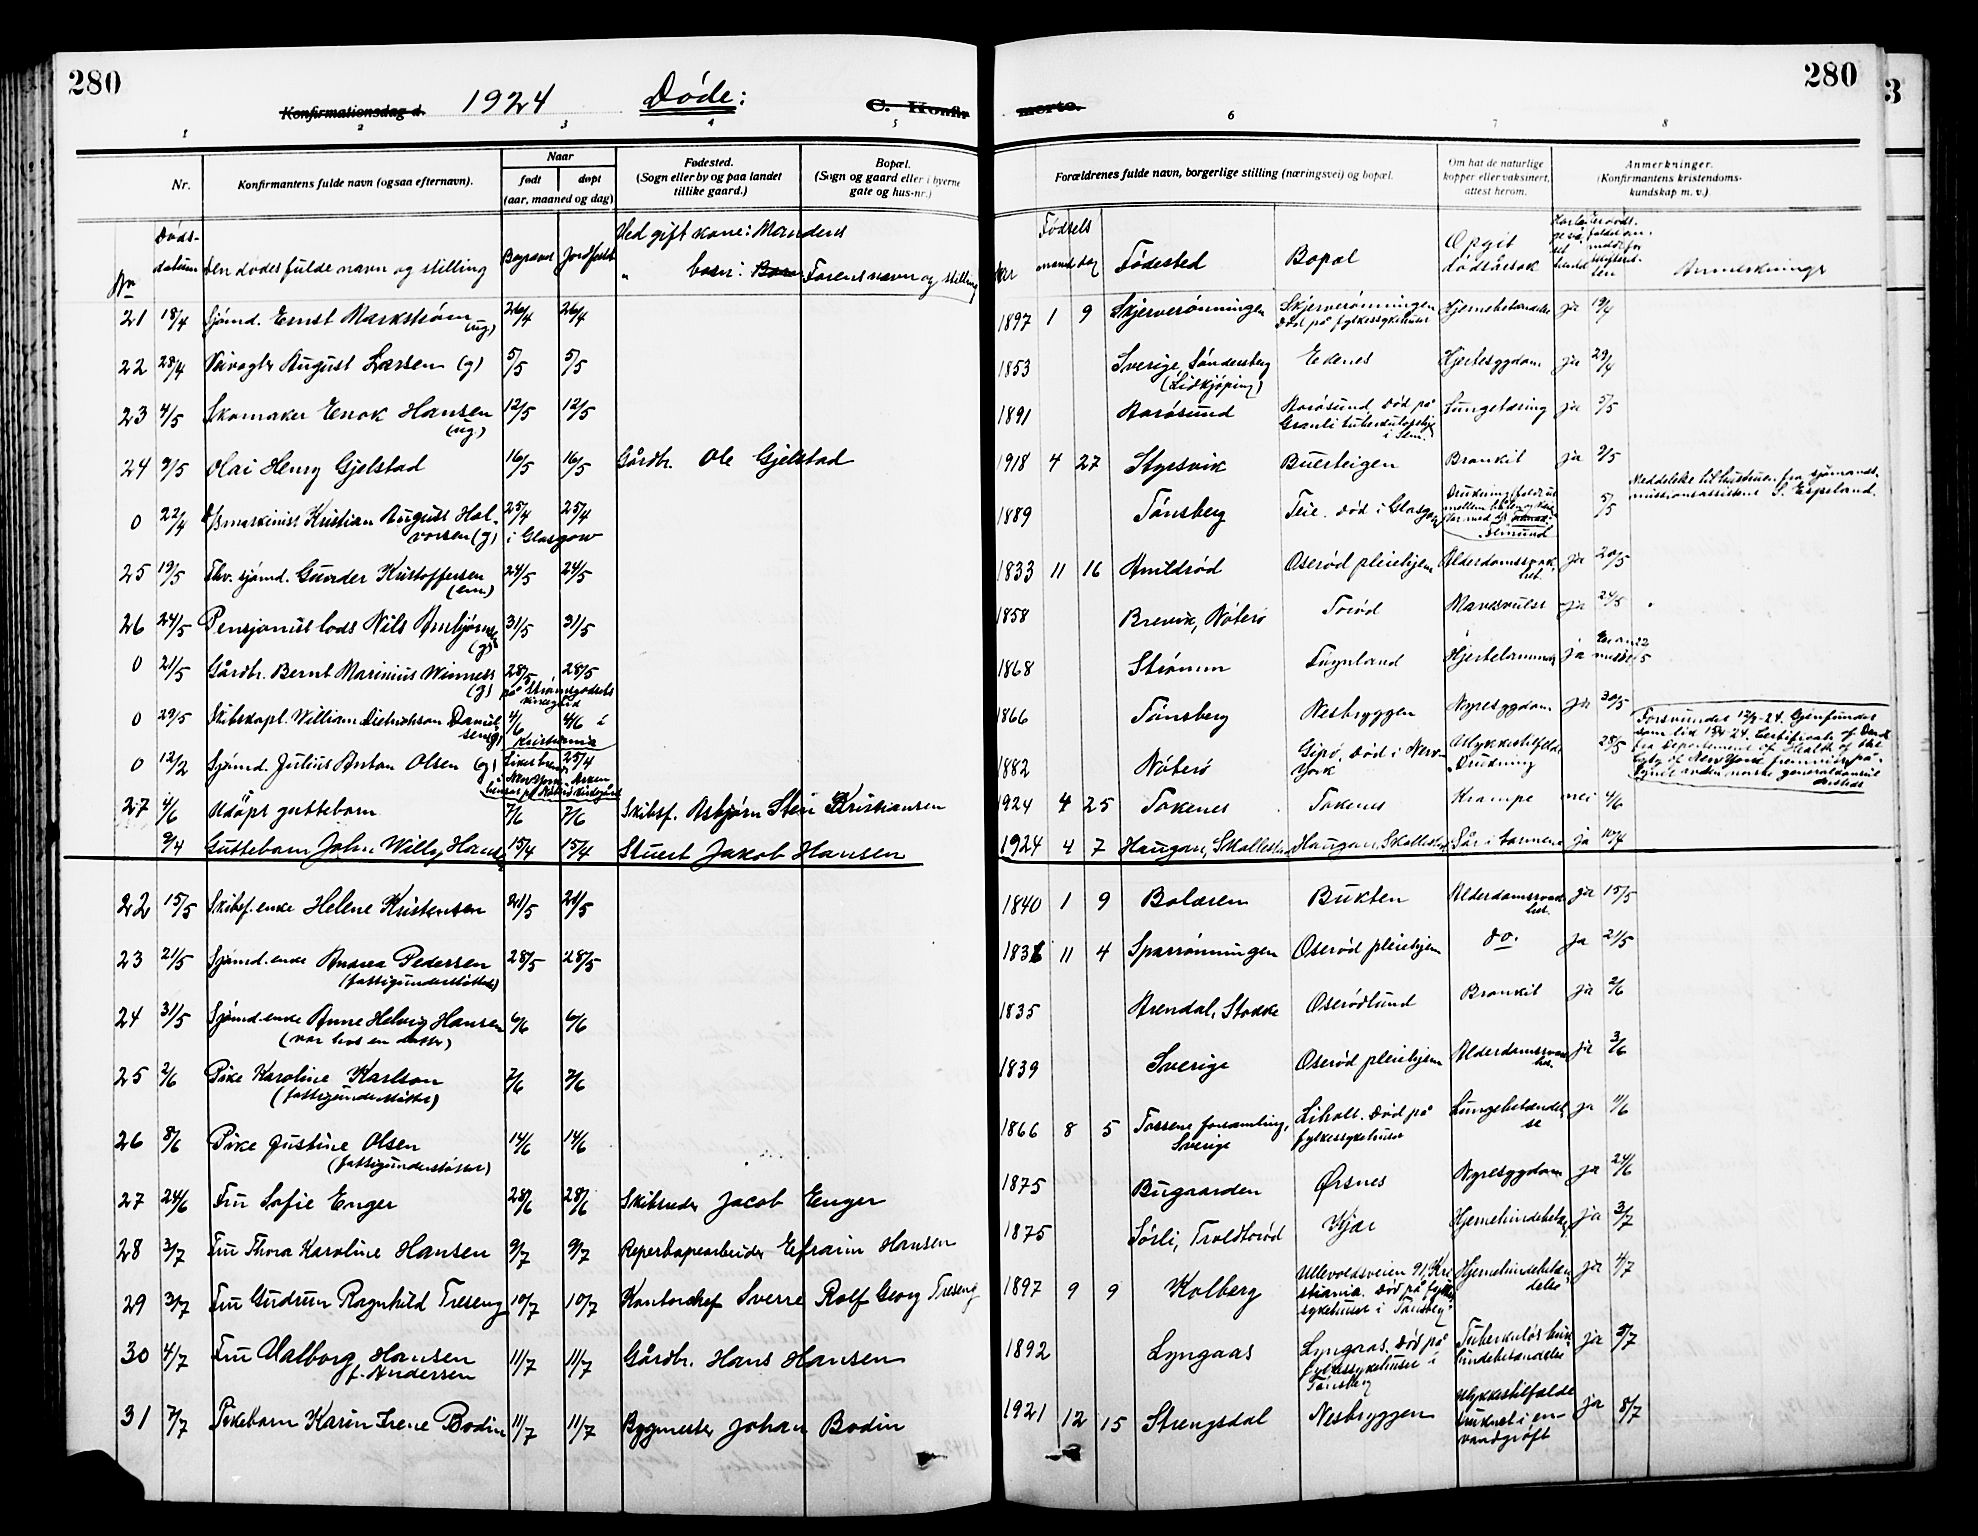 280
280
Konfirmationsdag d. 1924 Døde: C. Konfir merte.
1 2 3 4 5 6 7 8
Nr. Konfirmantens fulde navn (ogsaa efternavn). Naar født døpt (aar, maaned og dag) Fødested. (Sogn eller by og paa landet tillike gaard.) Bopæl. (Sogn og gaard eller i byerne gate og hus-nr.) Forældrenes fulde navn, borgerlige stilling (næringsvei) og bopæl. Om hat de naturlige kopper eller vaksinert, attest herom. Anmerkninger. (Konfirmantens kristendoms- kundskap m. v.)
Nr Døds- datum Den dødes fulde navn og stilling Begravet Jordfestet Ved gift kone: Mandens " barn: Farens navn og stilling Aar Fødsels maaned dag Fødested Bopæl Opgit dødsårsak Anmerkninger
21 18/4 Sjømd. Ernst Markstrøm (ug) 26/4 26/4 1897 1 9 Skjerverønningen Skjerverønningen Død på fylkessykehuset ja 19/4
22 28/4 Veivogter August Larsen (g) 5/5 5/5 1853 Sverige, Søndersberg (Lidkjøping) Edenes Hjertesygdom ja 29/4
23 4/5 Skomaker Enok Hansen (ug) 12/5 12/5 1891 Narøsund Narøsund, Død på Granli i Sem. Lungetæring ja 5/5
24 9/5 Olai Henry Gjelstad 16/5 16/5 Gårdbr. Ole Gjelstad 1918 4 27 Styrsvik Buerteigen Bronkit ja 9/5
0 22/4 Kristian August Halvorsen (g) 25/4 25/4 i Glasgow 1889 Tønsberg Teie. Død i Glasgow 5/5 Meddelelse til hustruen fra sjømands- missionsassistent S. Espeland.
25 19/5 Fhv. sjømd. Guvder Kristoffersen (em) 24/5 24/5 1833 11 16 Arnildrød Oserød pleiehjem Alderdomssvak- het. ja 20/5
26 24/5 Pensjonist lods Nils Arnbjørnsen (g) 31/5 31/5 1858 Brevik, Nøterø Torød Mavesvulst ja 24/5
0 21/5 Gårdbr. Bernt Marinius Winness (g) 28/5 28/5 på Strømsgodsets kirkegård 1868 Strømm Fuynland Hjertelammelse ja
0 29/5 Skibskapt. William Dietrichson Daniel- sen (g) 4/6 4/6 i Kristiania 1866 Tønsberg Nesbryggen Nyresygdom ja 30/5
0 12/2 Sjømd. Julius Anton Olsen (g) 25/4 1882 Nøterø Gipø. Død i New- York Ulykkestilfælde Drukning 28/5 Forsvundet 12/2-24. Gjenfundet som lik 15/4 24. Certificate of Death fra Departement of Health of the City of New York fremvist på
27 4/6 Udøpt guttebarn 7/6 7/6 Skibsf. Asbjørn Stein Kristiansen 1924 4 25 Tokenes Tokenes Krampe nei 4/6
9/4 Guttebarn John Willy Hansen 15/4 15/4 Stuert Jakob Hansen 1924 4 7 Haugan, Skallestad Haugan, Skallestad Sår i tarmene ja 10/4
22 15/5 Skibsf. enke Helene Kristensen 21/5 21/5 1840 1 9 Bolæren Bukten Alderdomssvak- het. ja 15/5
23 21/5 Sjømd. enke Andrea Pedersen (fattigunderstøttet) 28/5 28/5 11 4 Sparrønningen Oserød pleiehjem do. ja 21/5
24 31/5 Sjømd. enke Anne Helvig Hansen (var hos en datter) 6/6 6/6 1835 Arendal, Stokke Oserødlund Bronkit ja 2/6
25 2/6 Pike Karoline Karlson (fattigunderstøttet) 7/6 7/6 1839 Sverige Oserød pleiehjem Alderdomssvak- het. ja 3/6
26 8/6 Pike Justine Olsen (fattigunderstøttet) 14/6 14/6 1866 8 5 Tossene forsamling, Sverige Liholt. Død på fylkessykehuset Lungebetændel- se ja 11/6
27 24/6 Fru Sofie Enger 28/6 28/6 Skibsreder Jacob Enger 1875 Bugaarden Ørsnes Nyresygdom ja 24/6
28 3/7 Fru Thora Karoline Hansen 9/7 9/7 Reperbanearbeider Efraim Hansen 1875 Sørli, Troldtorød Kjær Hjernehindebetæn. ja 3/7
29 3/7 Fru Gudrun Ragnhild Treseng 10/7 10/7 Kontorchef Sverre Rolf Georg Treseng 1897 9 9 Kolberg Ullevoldsveien 91, Kri- stiania. Død på fylkes- sykehuset i Tønsberg Hjernehindebetæn- delse ja 4/7
30 4/7 Fru Valborg Hansen f. Andersen 11/7 11/7 Gårdbr. Hans Hansen 1892 Lyngaas Lyngaas. Død på fylkessykehuset i Tønsberg Tuberkuløs buk- hindebetændelse ja 5/7
31 7/7 Pikebarn Karin Irene Bodin 11/7 11/7 Bygmester Johan Bodin 1921 12 15 Strengsdal Nesbryggen Ulykkestilfælde druknet i en vandgrøft ja 8/7